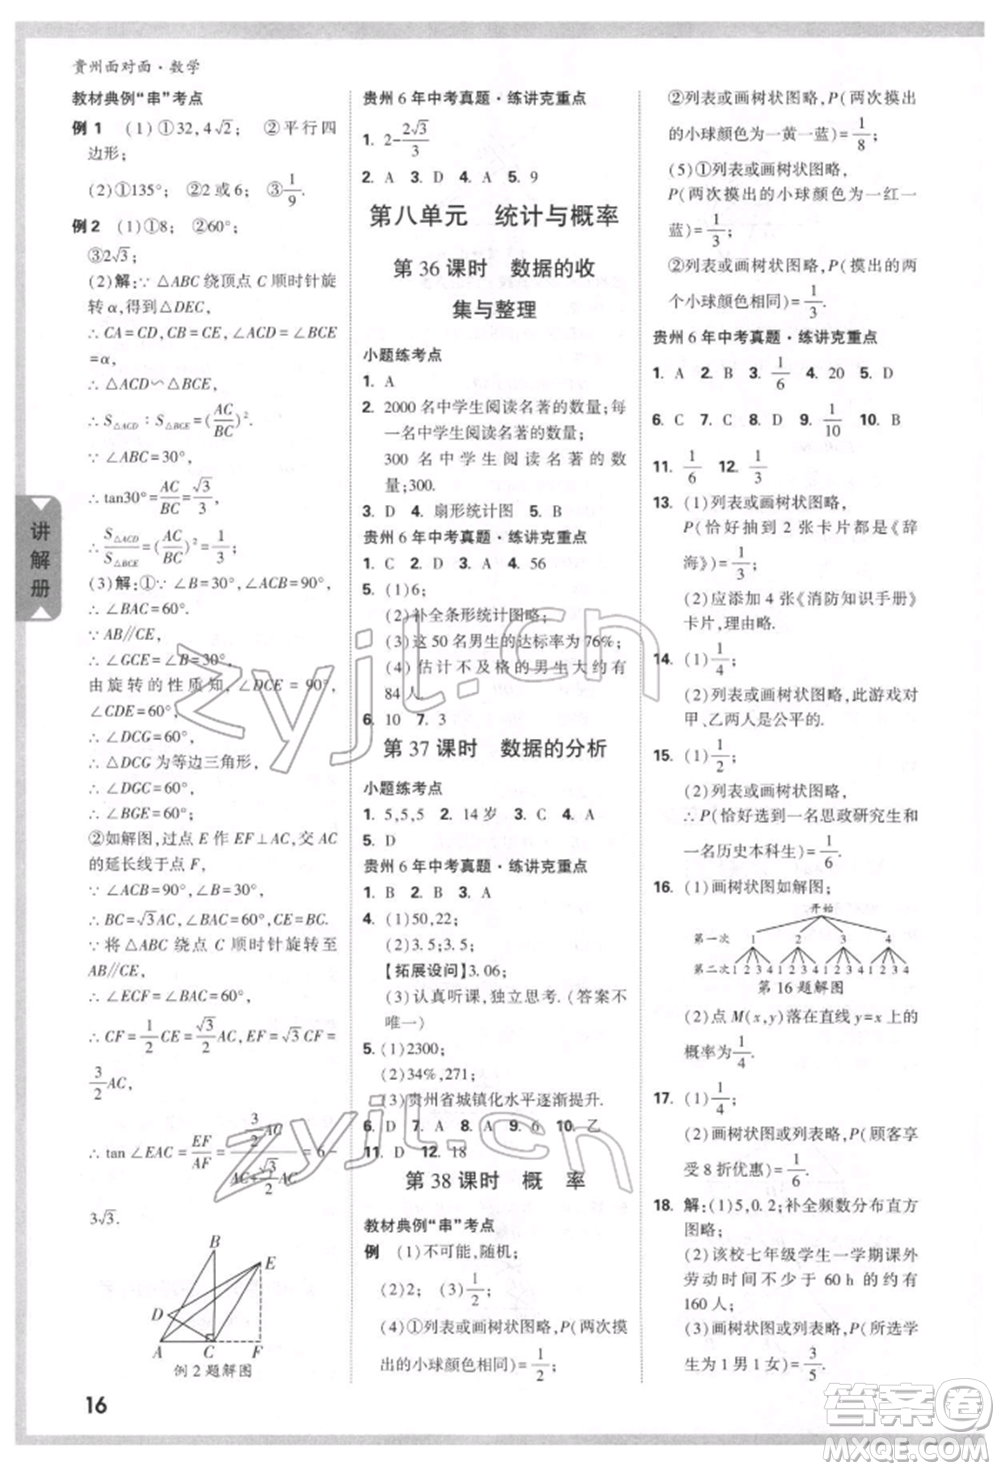 贵州面对面·数学
教材典例“串”考点
例 1 (1)①32,4√2; ②平行四
边形;
(2)①135°; ②2 或 6; ③1/9.
例 2 (1)①8; ②60°;
③2√3;
(2)解:∵ △ABC 绕顶点 C 顺时针旋
转 α,得到△DEC,
∴ CA=CD,CB=CE,∠ACD=∠BCE
=α,
∴ △ACD∽△BCE,
∴ S△ACD∶S△BCE=(AC/BC)².
∵ ∠ABC=30°,
∴ tan30°=AC/BC=√3/3,
∴ S△ACD/S△BCE=(AC/BC)²=1/3.
(3)解:①∵ ∠B=30°,∠ACB=90°,
∴ ∠BAC=60°.
∵ AB//CE,
∴ ∠GCE=∠B=30°,
由旋转的性质知,∠DCE=90°,
∠CDE=60°,
∴ ∠DCG=60°,
∴ △DCG 为等边三角形,
∴ ∠DGC=60°,
∴ ∠BGE=60°;
②如解图,过点 E 作 EF⊥AC,交 AC
的延长线于点 F,
∵ ∠ACB=90°,∠B=30°,
∴ BC=√3AC,∠BAC=60°.
∵ 将△ABC 绕点 C 顺时针旋转至
AB//CE,
∴ ∠ECF=∠BAC=60°,BC=CE,
∴ CF=1/2CE=√3/2AC,EF=√3CF=
3/2AC,
∴ tan∠EAC=EF/AF=(3/2AC)/(AC+√3/2AC)=6-
3√3.
B
E
D
A C F
例 2 题解图
16
讲解册
贵州 6 年中考真题·练讲克重点
1. 2-2√3/3
2. A 3. D 4. A 5. 9
第八单元 统计与概率
第 36 课时 数据的收
集与整理
小题练考点
1. A
2. 2000 名中学生阅读名著的数量;每
一名中学生阅读名著的数量;
300 名中学生阅读名著的数
量;300.
3. D 4. 扇形统计图 5. B
贵州 6 年中考真题·练讲克重点
1. C 2. D 3. A 4. 56
5. (1)6;
(2)补全条形统计图略;
(3)这 50 名男生的达标率为 76%;
(4)估计不及格的男生大约有
84 人.
6. 10 7. 3
第 37 课时 数据的分析
小题练考点
1. 5,5,5 2. 14 岁 3. C 4. A
5. D
贵州 6 年中考真题·练讲克重点
1. B 2. B 3. A
4. (1)50,22;
(2)3.5;3.5;
【拓展设问】3.06;
(3)认真听课,独立思考.(答案不
唯一)
5. (1)2300;
(2)34%,271;
(3)贵州省城镇化水平逐渐提升.
6. D 7. A 8. A 9. 6 10. 乙
11. D 12. 18
第 38 课时 概 率
教材典例“串”考点
例 (1)不可能,随机;
(2)2; (3)1/2;
(4)①列表或画树状图略,P(两次摸
出的小球颜色相同)=1/2;
②列表或画树状图略,P(两次摸出
的小球颜色为一黄一蓝)=1/8;
(5)①列表或画树状图略,
P(两次摸出的小球颜色为一红一
蓝)=1/3;
②列表或画树状图略,P(摸出的两
个小球颜色相同)=1/3.
贵州 6 年中考真题·练讲克重点
1. A 2. B 3. 1/6 4. 20 5. D
6. C 7. C 8. D 9. 1/10 10. B
11. 1/6 12. 1/3
13. (1)列表或画树状图略,
P(恰好抽到 2 张卡片都是《辞
海》)=1/3;
(2)应添加 4 张《消防知识手册》
卡片,理由略.
14. (1)1/4;
(2)列表或画树状图略,此游戏对
甲、乙两人是公平的.
15. (1)1/2;
(2)列表或画树状图略,
∴ P(恰好选到一名思政研究生和
一名历史本科生)=1/6.
16. (1)画树状图如解图;
开始
第一次 1 2 3 4
第二次 1 2 3 4 1 2 3 4 1 2 3 4 1 2 3 4
第 16 题解图
(2)点 M(x,y)落在直线 y=x 上的
概率为1/4.
17. (1)1/4;
(2)画树状图或列表略,P(顾客享
受 8 折优惠)=1/6.
18. 解:(1)5,0.2;补全频数分布直方
图略;
(2)该校七年级学生一学期课外
劳动时间不少于 60 h 的约有
160 人;
(3)画树状图或列表略,P(所选学
生为 1 男 1 女)=3/5.
zyjl.cn
zyjl.cn
答案圈
MXQE.COM